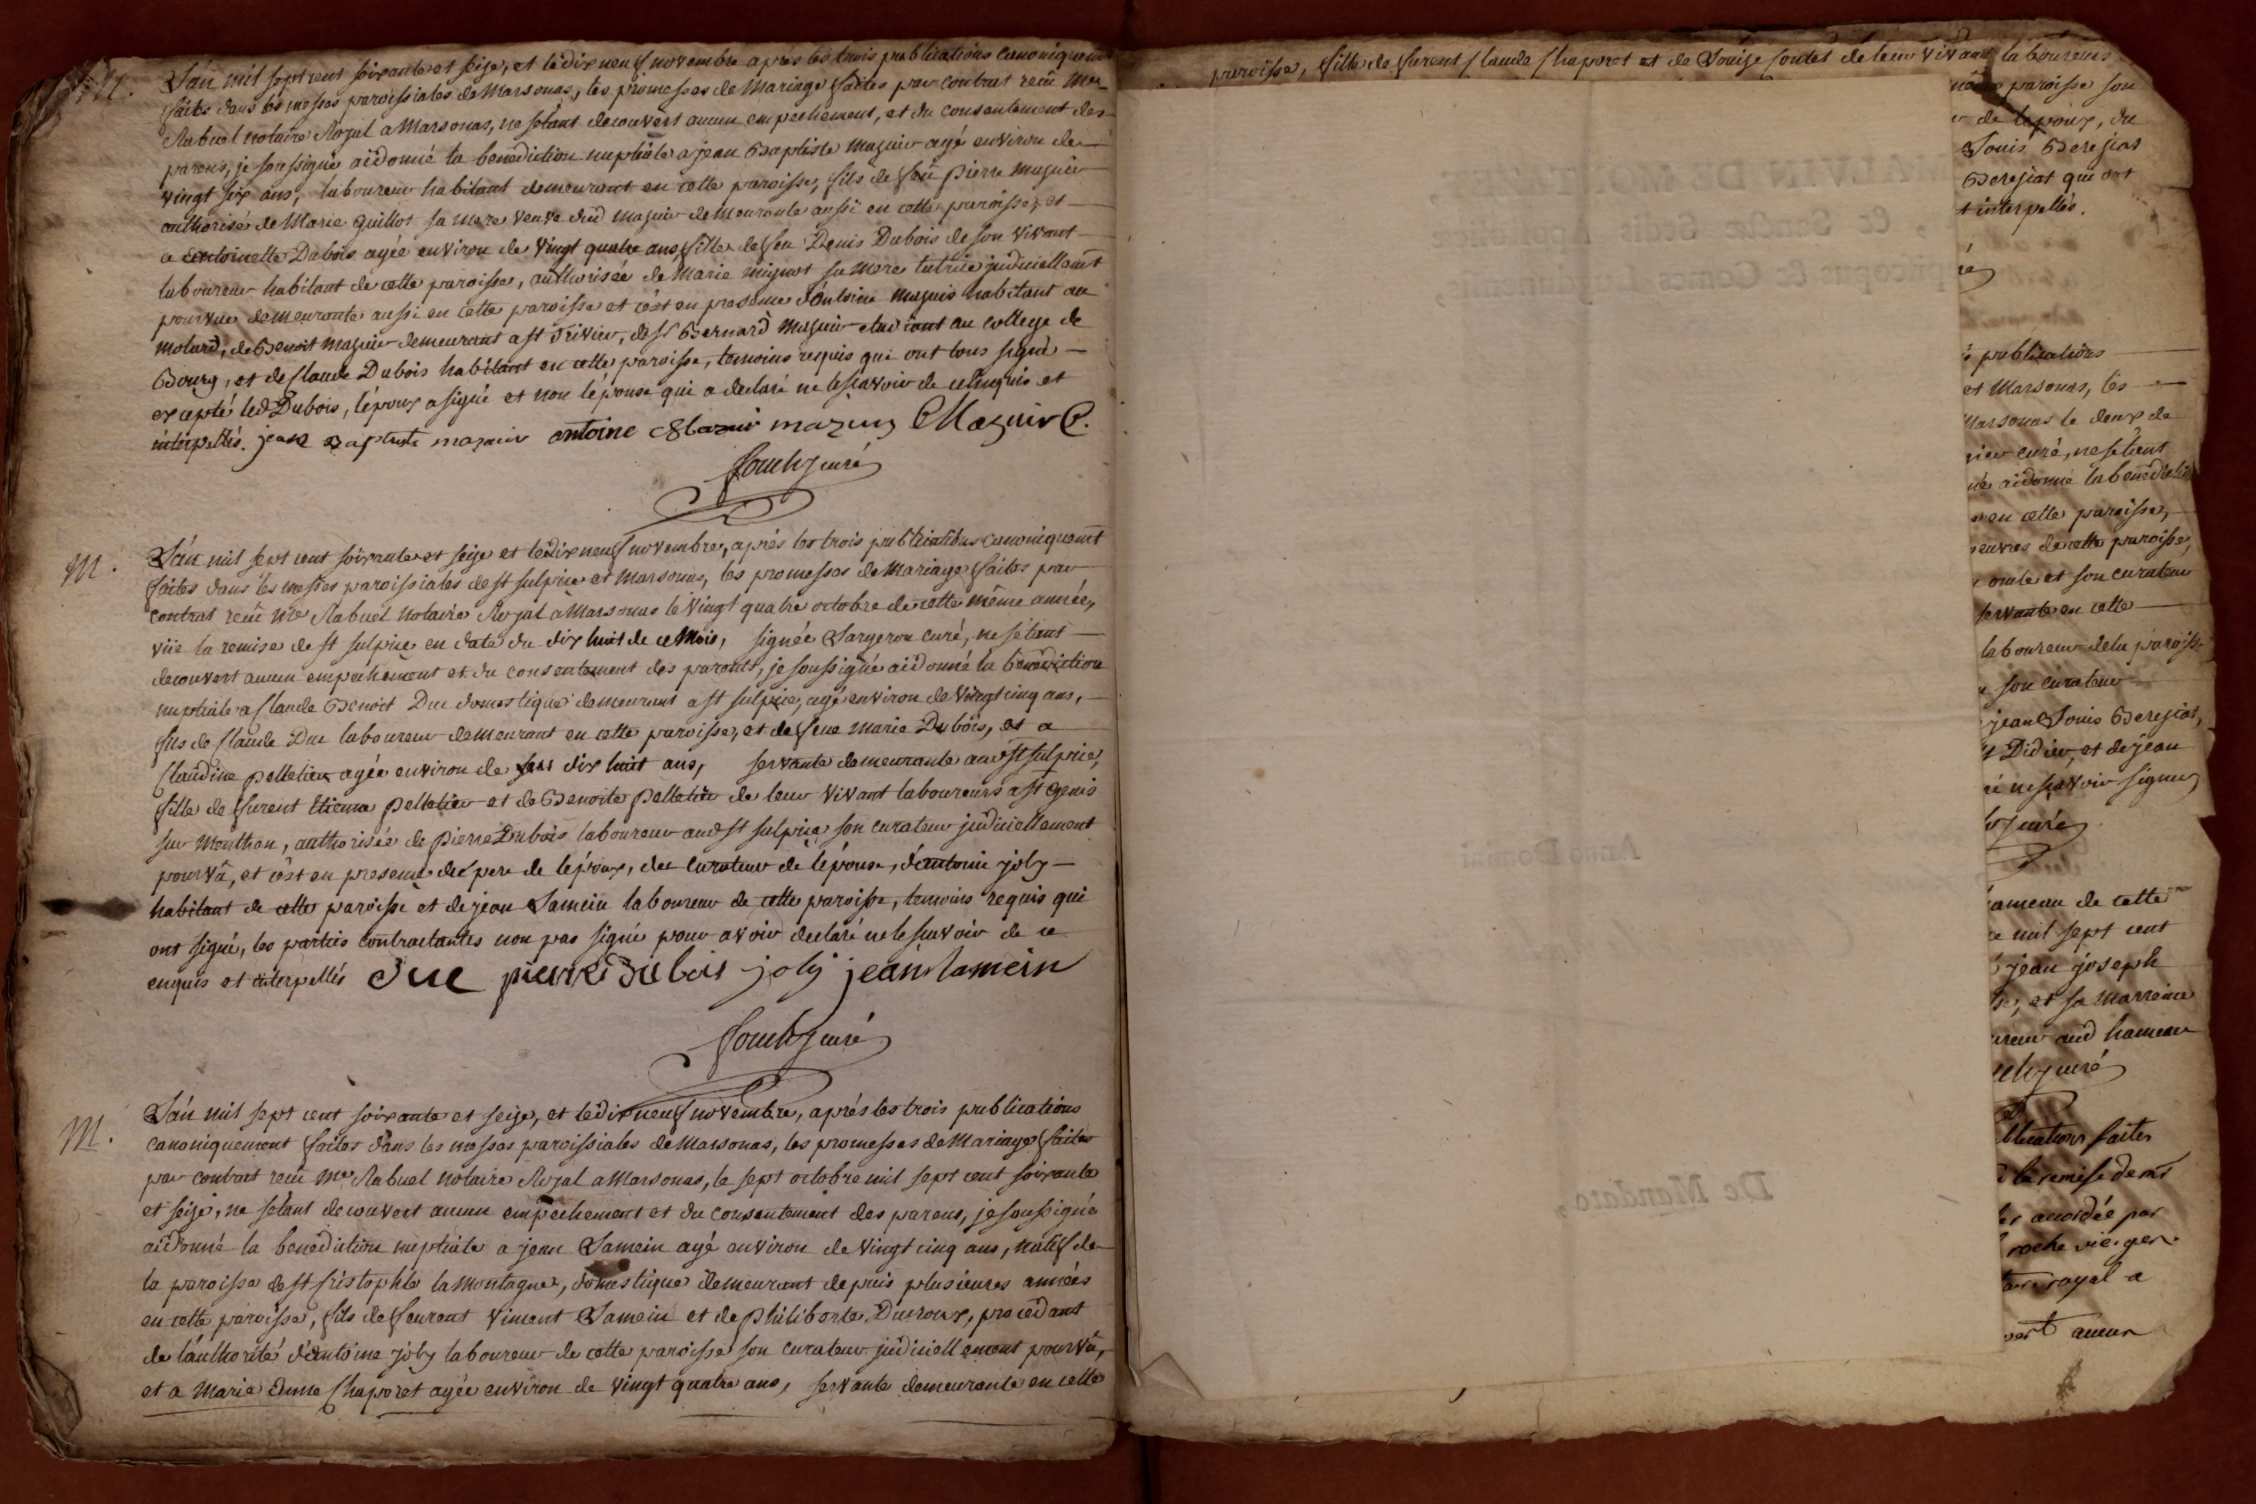 M.
L'an mil sept cent soixante et seize, et le dix neuf novembre après les trois publications canoniquemt
faites dans les messes paroissiales de Marsonas, les promesses de Mariage faites par contrat reçu Me
Rabuel notaire Royal a Marsonas, ne s'étant decouvert aucun empechement, et du consentement des
parens, je soussigné ai donné la benediction nuptiale a jean Baptiste Mazuir agé environ de
vingt six ans, laboureur habitant demeurant en cette paroisse, fils de feu Pierre Mazuir
authorisé de Marie Guillot sa mere veuve dud Mazuir demeurante aussi en cette paroisse, et
a Antoinette Dubois agée environ de vingt quatre ans fille de feu Denis Dubois de son vivant
laboureur habitant de cette paroisse, authorisée de Marie mignot sa mere tutrice judiciellemt
pourvue demeurante aussi en cette paroisse et c'est en presence d'Antoine Mazuir habitant au
molard, de Benoit Mazuir demeurant a st Trivier, de sr Bernard Mazuir etudiant au college de
Bourg, et de Claude Dubois habitant en cette paroisse, temoins requis qui ont tous signé
excepté led Dubois, l'epoux a signé et non l'épouse qui a declaré ne le scavoir de ce enquis et
interpellés. jean baptiste mazuir antoine mazuir Mazuir C.
curé
M.
L'an mil sept cent soixante et seize et le dix neuf novembre, après les trois publications canoniquemt
faites dans les messes paroissiales de st sulpice et Marsonas, les promesses de Mariage faites par
contrat reçu Me Rabuel notaire Royal à Marsonas le vingt quatre octobre de cette même année,
vüe la remise de st sulpice en date du dix huit de ce Mois, signée Sargeron curé, ne s'étant
decouvert aucun empechement et du consentement des parents, je soussigné ai donné la benediction
nuptiale a Claude Benoit Duc domestique demeurant a st sulpice, agé environ de vingt cinq ans,
fils de Claude Duc laboureur demeurant en cette paroisse, et de feue Marie Dubois, et a
Claudine Pelletier agée environ de dix huit ans, servante demeurante aud st sulpice,
fille de furent Etienne Pelletier et de Benoite Pelletier de leur vivant laboureurs a st Genis
sur Menthon, authorisée de Pierre Dubois laboureur aud st sulpice son curateur judiciellement
pourvû, et c'est en presence du pere de l'époux, du curateur de l'épouse, d'antoine joly
habitant de cette paroisse et de jean Lamein laboureur de cette paroisse, temoins requis qui
ont signé, les parties contractantes non pas signé pour avoir declaré ne le scavoir de ce
enquis et interpellés Duc pierre Dubois joly jean lamein
curé
M.
L'an mil sept cent soixante et seize, et le dix neuf novembre, après les trois publications
canoniquement faites dans les messes paroissiales de Marsonas, les promesses de Mariage faites
par contrat reçu Me Rabuel notaire Royal a Marsonas, le sept octobre mil sept cent soixante
et seize, ne s'étant decouvert aucun empechement et du consentement des parens, je soussigné
ai donné la benediction nuptiale a jean Lamein agé environ de vingt cinq ans, natif de
la paroisse de st Cristophle la montagne, domestique demeurant depuis plusieures années
en cette paroisse, fils de feurent Vincent Lamein et de Philiberte Ducroux, procedant
de l'authorité d'antoine joly laboureur de cette paroisse son curateur judiciellement pourvû,
et a Marie Anne Chaporet agée environ de vingt quatre ans, servante demeurante en cette
paroisse, fille de furent Claude Chaporet et de Louise de leur vivant laboureurs
paroisse son
de l'epoux, du
Louis Bereziat
Bereziat qui ont
interpellés.
publications
et Marsonas, les
Marsonas le deux de
curé, ne s'étant
ai donné la benediction
en cette paroisse,
de cette paroisse,
oncle et son curateur
servante en cette
laboureur de la paroisse
son curateur
jean Louis Bereziat,
Didier, et de jean
ne scavoir signer
curé
Anno Domini
hameau de cette
mil sept cent
jean joseph
et sa Marreine
aud hameau
curé
De Mandato,
publications faites
la remise de
accordée par
roche vic. ger.
royal a
aucun